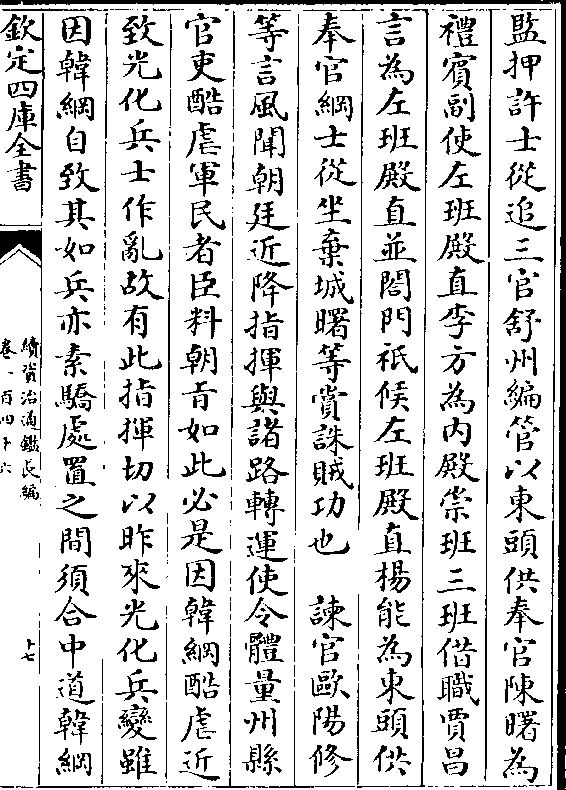 監押許士從追三官舒州編管以東頭供奉官陳曙為
禮賓副使左班殿直李方為內殿崇班三班借職賈昌
言為左班殿直並閤門祗候左班殿直楊能為東頭供
奉官綱士從坐棄城曙等賞誅賊功也　諫官歐陽修
等言風聞朝廷近降指揮與諸路轉運使令體量州縣
官吏酷虐軍民者臣料朝旨如此必是因韓綱酷虐近
致光化兵士作亂故有此指揮切以昨來光化兵變雖
因韓綱自致其如兵亦素驕處置之間須合中道韓綱
欽定四庫全書
續資治通鑑長編
卷一百四十六
十七